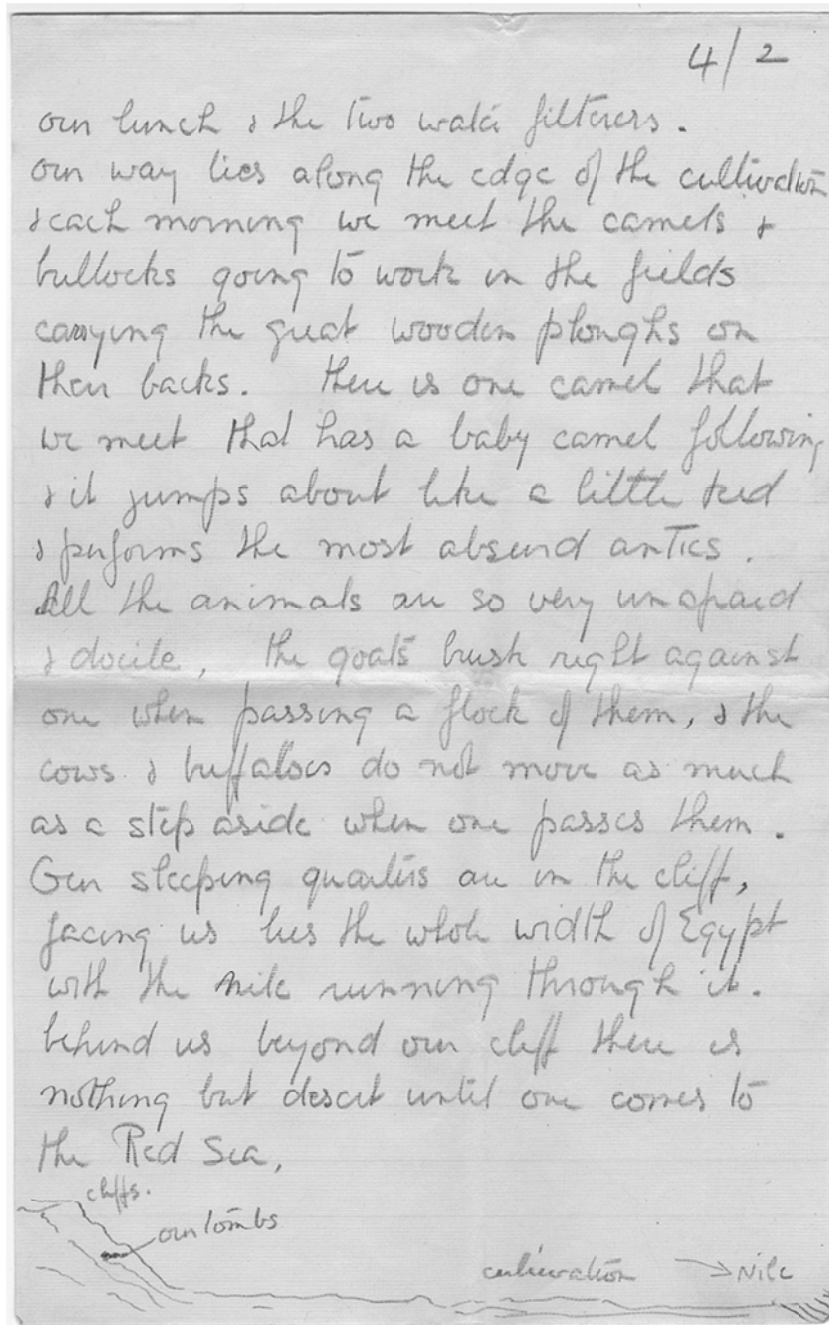 4/2
our lunch & the two water filterers.
our way lies along the edge of the cultivation
& each morning we meet the camels &
bullocks going to work in the fields
carrying the great wooden ploughs on
their backs. There is one camel that
we meet that has a baby camel following
& it jumps about like a little kid
& performs the most absurd antics.
All the animals are so very unafraid
& docile, the goats brush right against
one when passing a flock of them, & the
cows & buffaloes do not move as much
as a step aside when one passes them.
Our sleeping quarters are in the cliff,
facing us lies the whole width of Egypt
with the Nile running through it.
behind us beyond our cliff there is
nothing but desert until one comes to
the Red Sea,
cliffs.
our tombs
cultivation → Nile